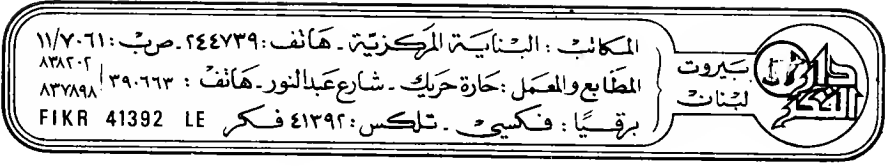 دار الفكر
بيروت
لبنان
المكاتب : البناية المركزيّة ـ هاتف : ٢٤٤٧٣٩ ـ صب : ١١/٧٠٦١
المطابع والمعمل : حارة حريك ـ شارع عبد النور ـ هاتف : ٣٩٠٦٦٣ / ٨٣٨٢٠٢ ٨٣٧٨٩٨
برقيًّا : فكسي ـ تلكس : ٤١٣٩٢ فكر FIKR 41392 LE